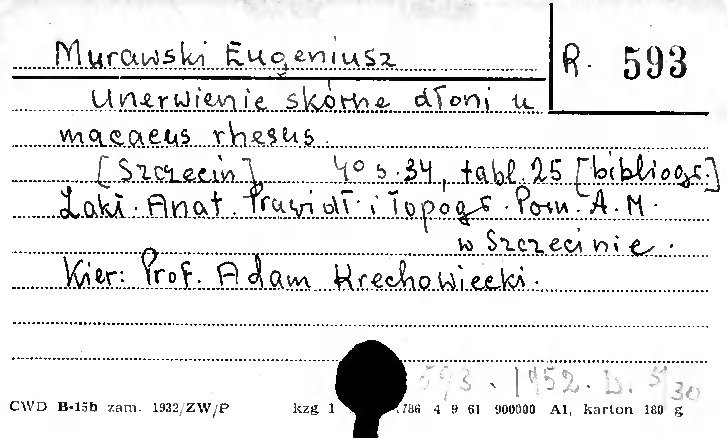 Murawski Eugeniusz
R. 593
Unerwienie skórne dłoni u
macacus rhesus.
[Szczecin] 4o s. 34, tabl. 25 [bibliogr.]
Zakł. Anat. Prawidł. i Topogr. Pom. A. M.
w Szczecinie.
Kier: Prof. Adam Krechowiecki.
593. 1952. D. 5/30
CWD B-15b zam. 1932/ZW/P kzg 1 1786 4 9 61 900000 A1, karton 180 g